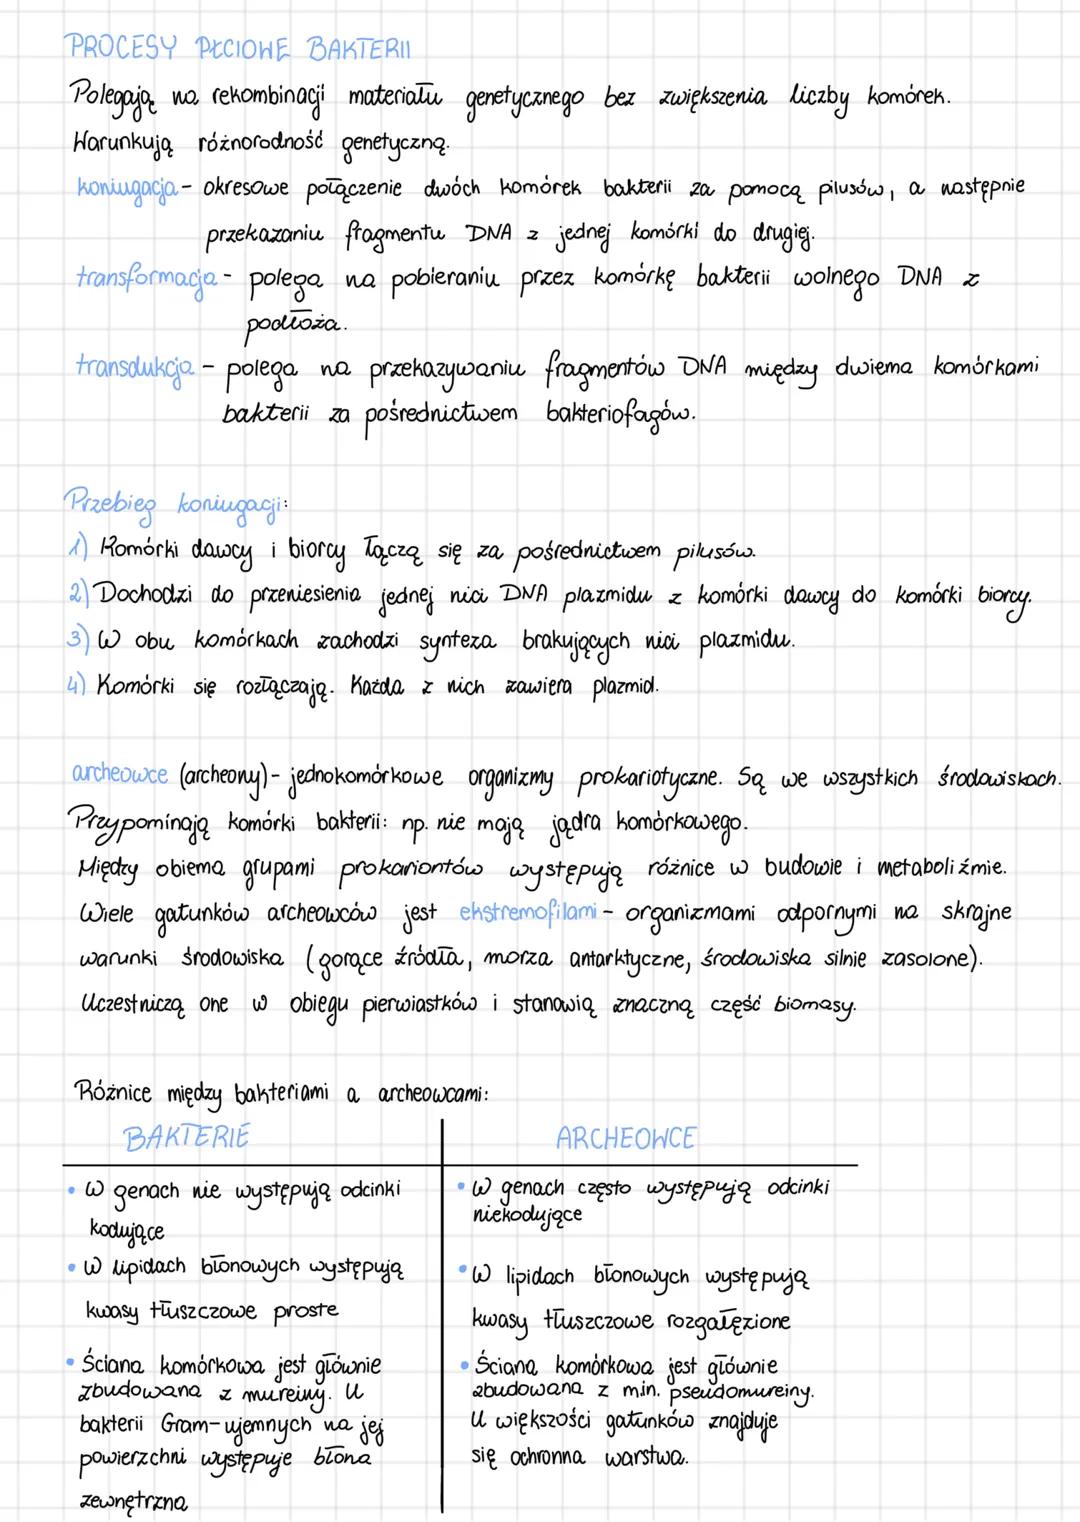 PROCESY PŁCIOWE BAKTERII
Polegają na rekombinacji materiału genetycznego bez zwiększenia liczby komórek.
Warunkują różnorodność genetyczną.
koniugacja - okresowe połączenie dwóch komórek bakterii za pomocą pilusów, a następnie
przekazaniu fragmentu DNA z jednej komórki do drugiej.
transformacja - polega na pobieraniu przez komórkę bakterii wolnego DNA z
podłoża.
transdukcja - polega na przekazywaniu fragmentów DNA między dwiema komórkami
bakterii za pośrednictwem bakteriofagów.
Przebieg koniugacji:
1) Komórki dawcy i biorcy łączą się za pośrednictwem pilusów.
2) Dochodzi do przeniesienia jednej nici DNA plazmidu z komórki dawcy do komórki biorcy.
3) W obu komórkach zachodzi synteza brakujących nici plazmidu.
4) Komórki się rozłączają. Każda z nich zawiera plazmid.
archeowce (archeony) - jednokomórkowe organizmy prokariotyczne. Są we wszystkich środowiskach.
Przypominają komórki bakterii: np. nie mają jądra komórkowego.
Między obiema grupami prokariontów występują różnice w budowie i metaboliźmie.
Wiele gatunków archeowców jest ekstremofilami - organizmami odpornymi na skrajne
warunki środowiska (gorące źródła, morza antarktyczne, środowiska silnie zasolone).
Uczestniczą one w obiegu pierwiastków i stanowią znaczną część biomasy.
Różnice między bakteriami a archeowcami:
BAKTERIE
• W genach nie występują odcinki
kodujące
• W lipidach błonowych występują
kwasy tłuszczowe proste
• Ściana komórkowa jest głównie
zbudowana z mureiny. U
bakterii Gram-ujemnych na jej
powierzchni występuje błona
zewnętrzna
ARCHEOWCE
• W genach często występują odcinki
niekodujące
• W lipidach błonowych występują
kwasy tłuszczowe rozgałęzione
• Ściana komórkowa jest głównie
zbudowana z min. pseudomureiny.
U większości gatunków znajduje
się ochronna warstwa.